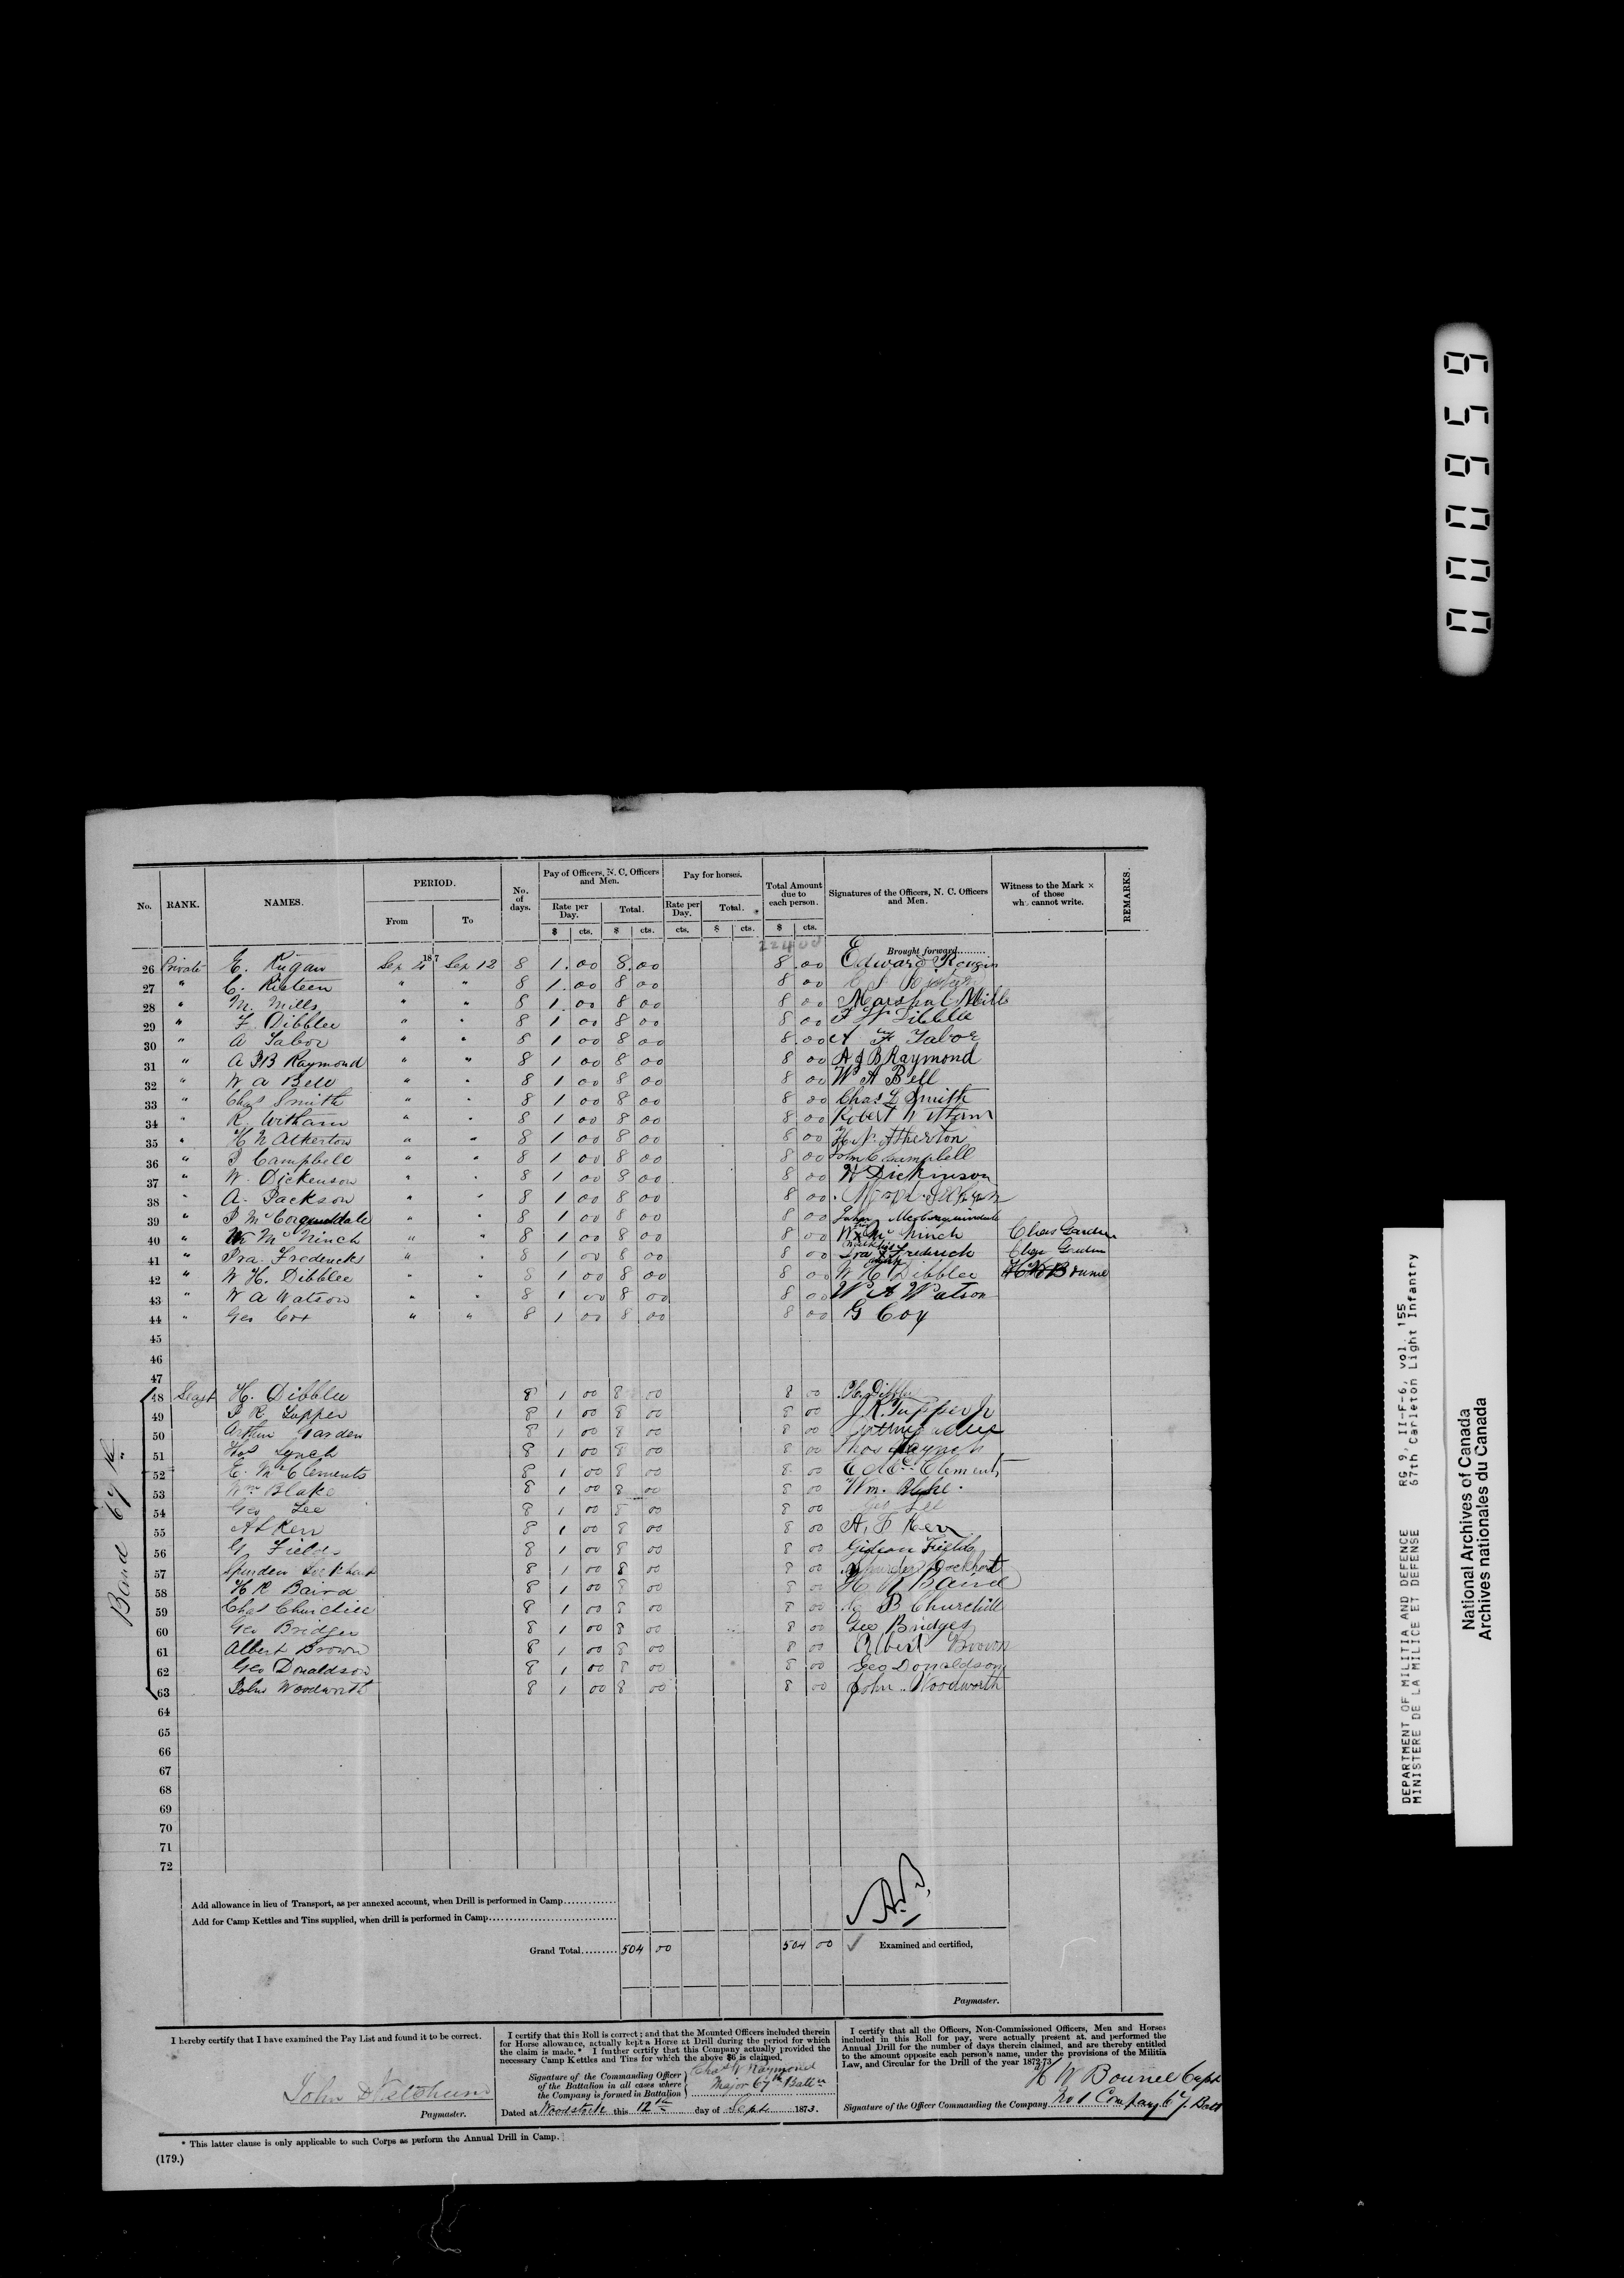 No. RANK. NAMES. PERIOD. No. of days. Pay of Officers, N. C. Officers and Men. Pay for horses. Total Amount due to each person. Signatures of the Officers, N. C. Officers and Men. Witness to the Mark × of those wh. cannot write. REMARKS.
From To Rate per Day. Total. Rate per Day. Total.
$ cts. $ cts. cts. $ cts. $ cts.
187 224 00 Brought forward..........
26 Private E. Rugan Sep 4 Sep 12 8 1.00 8.00 8.00 Edward
27 " C. Risteen " " 8 1.00 8 00 8 00
28 " M. Mills " " 8 1.00 8 00 8 00 Marshal Mills
29 " F. Dibblee " " 8 1 00 8 00 8 00 Dibblee
30 " A Tabor " " 8 1 00 8 00 8.00 A F Tabor
31 " A J B Raymond " " 8 1 00 8 00 8 00 A J B Raymond
32 " W A Bell " " 8 1 00 8 00 8 00 W A Bell
33 " Chas Smith " " 8 1 00 8 00 8 00 Chas L Smith
34 " R. Witham " " 8 1 00 8 00 8 00 Robert Witham
35 " H N Atherton " " 8 1 00 8 00 8 00 H. N. Atherton
36 " J Campbell " " 8 1 00 8 00 8 00 John C Campbell
37 " W. Dickenson " " 8 1 00 8 00 8 00 W Dickinson
38 " A. Jackson " " 8 1 00 8 00 8 00
39 " J McCorquindale " " 8 1 00 8 00 8 00 John McCorquindale
40 " Wm McNinch " " 8 1 00 8 00 8 00 Wm × McNinch Chas Garden
41 " Ira Fredericks " " 8 1 00 8 00 8 00 Ira his × mark Fredrick Chas Garden
42 " W H. Dibblee " " 8 1 00 8 00 8 00 W H Dibblee H W Bourne
43 " W A Watson " " 8 1 00 8 00 8 00 W A Watson
44 " Geo Cox " " 8 1 00 8 00 8 00 G Coy
45
46
47
Band 67th
48 Sergt H. Dibblee 8 1 00 8 00 8 00 H. Dibblee
49 J R Tupper 8 1 00 8 00 8 00 J. R. Tupper Jr
50 Arthur Garden 8 1 00 8 00 8 00 Arthur
51 Thos Lynch 8 1 00 8 00 8 00 Thos Laynch
52 E. McClements 8 1 00 8 00 8 00 E McClements
53 Wm Blake 8 1 00 8 00 8 00 Wm. Blake.
54 Geo Lee 8 1 00 8 00 8 00 Geo Lee
55 A L Kerr 8 1 00 8 00 8 00 A. F Kerr
56 G. Fields 8 1 00 8 00 8 00 Gideon Fields
57 Spurden Lockhart 8 1 00 8 00 8 00 Spurden Lockhart
58 H R Baird 8 1 00 8 00 8 00 H R Baird
59 Chas Churchill 8 1 00 8 00 8 00 C B Churchill
60 Geo Bridges 8 1 00 8 00 8 00 Geo Bridges
61 Albert Brown 8 1 00 8 00 8 00 Albert Brown
62 Geo Donaldson 8 1 00 8 00 8 00 Geo Donaldson
63 John Woodworth 8 1 00 8 00 8 00 John Woodworth
64
65
66
67
68
69
70
71
72
Add allowance in lieu of Transport, as per annexed account, when Drill is performed in Camp.............
Add for Camp Kettles and Tins supplied, when drill is performed in Camp...............................
Grand Total......... 504 00 504 00 Examined and certified,
Paymaster.
I hereby certify that I have examined the Pay List and found it to be correct.
John D Ketchum
Paymaster.
I certify that this Roll is correct; and that the Mounted Officers included therein
for Horse allowance, actually kept a Horse at Drill during the period for which
the claim is made.* I further certify that this Company actually provided the
necessary Camp Kettles and Tins for which the above $6 is claimed.
Signature of the Commanding Officer
of the Battalion in all cases where
the Company is formed in Battalion
Chas W Raymond
Major 67th Battn
Dated at Woodstock this 12th day of Sept 1873.
I certify that all the Officers, Non-Commissioned Officers, Men and Horses
included in this Roll for pay, were actually present at, and performed the
Annual Drill for the number of days therein claimed, and are thereby entitled
to the amount opposite each person's name, under the provisions of the Militia
Law, and Circular for the Drill of the year 1872 73
H W Bourne Capt
Signature of the Officer Commanding the Company No 1 Company 67 Batt
* This latter clause is only applicable to such Corps as perform the Annual Drill in Camp.
(179.)
000656
DEPARTMENT OF MILITIA AND DEFENCE RG 9, II-F-6, vol. 155
MINISTERE DE LA MILICE ET DEFENSE 67th Carleton Light Infantry
National Archives of Canada
Archives nationales du Canada